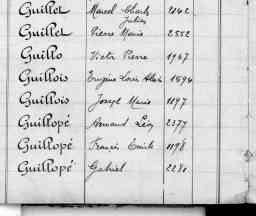 Guillet Marcel Charles 1142
Julien
Guillet Pierre Marie 2552
Guillo Victor Pierre 1967
Guillois Eugène Louis 1594
Guillois Joseph Marie 1197
Guillopé Armand Léon 2377
Guillopé Francis Emile 1198
Guillopé Gabriel 2280